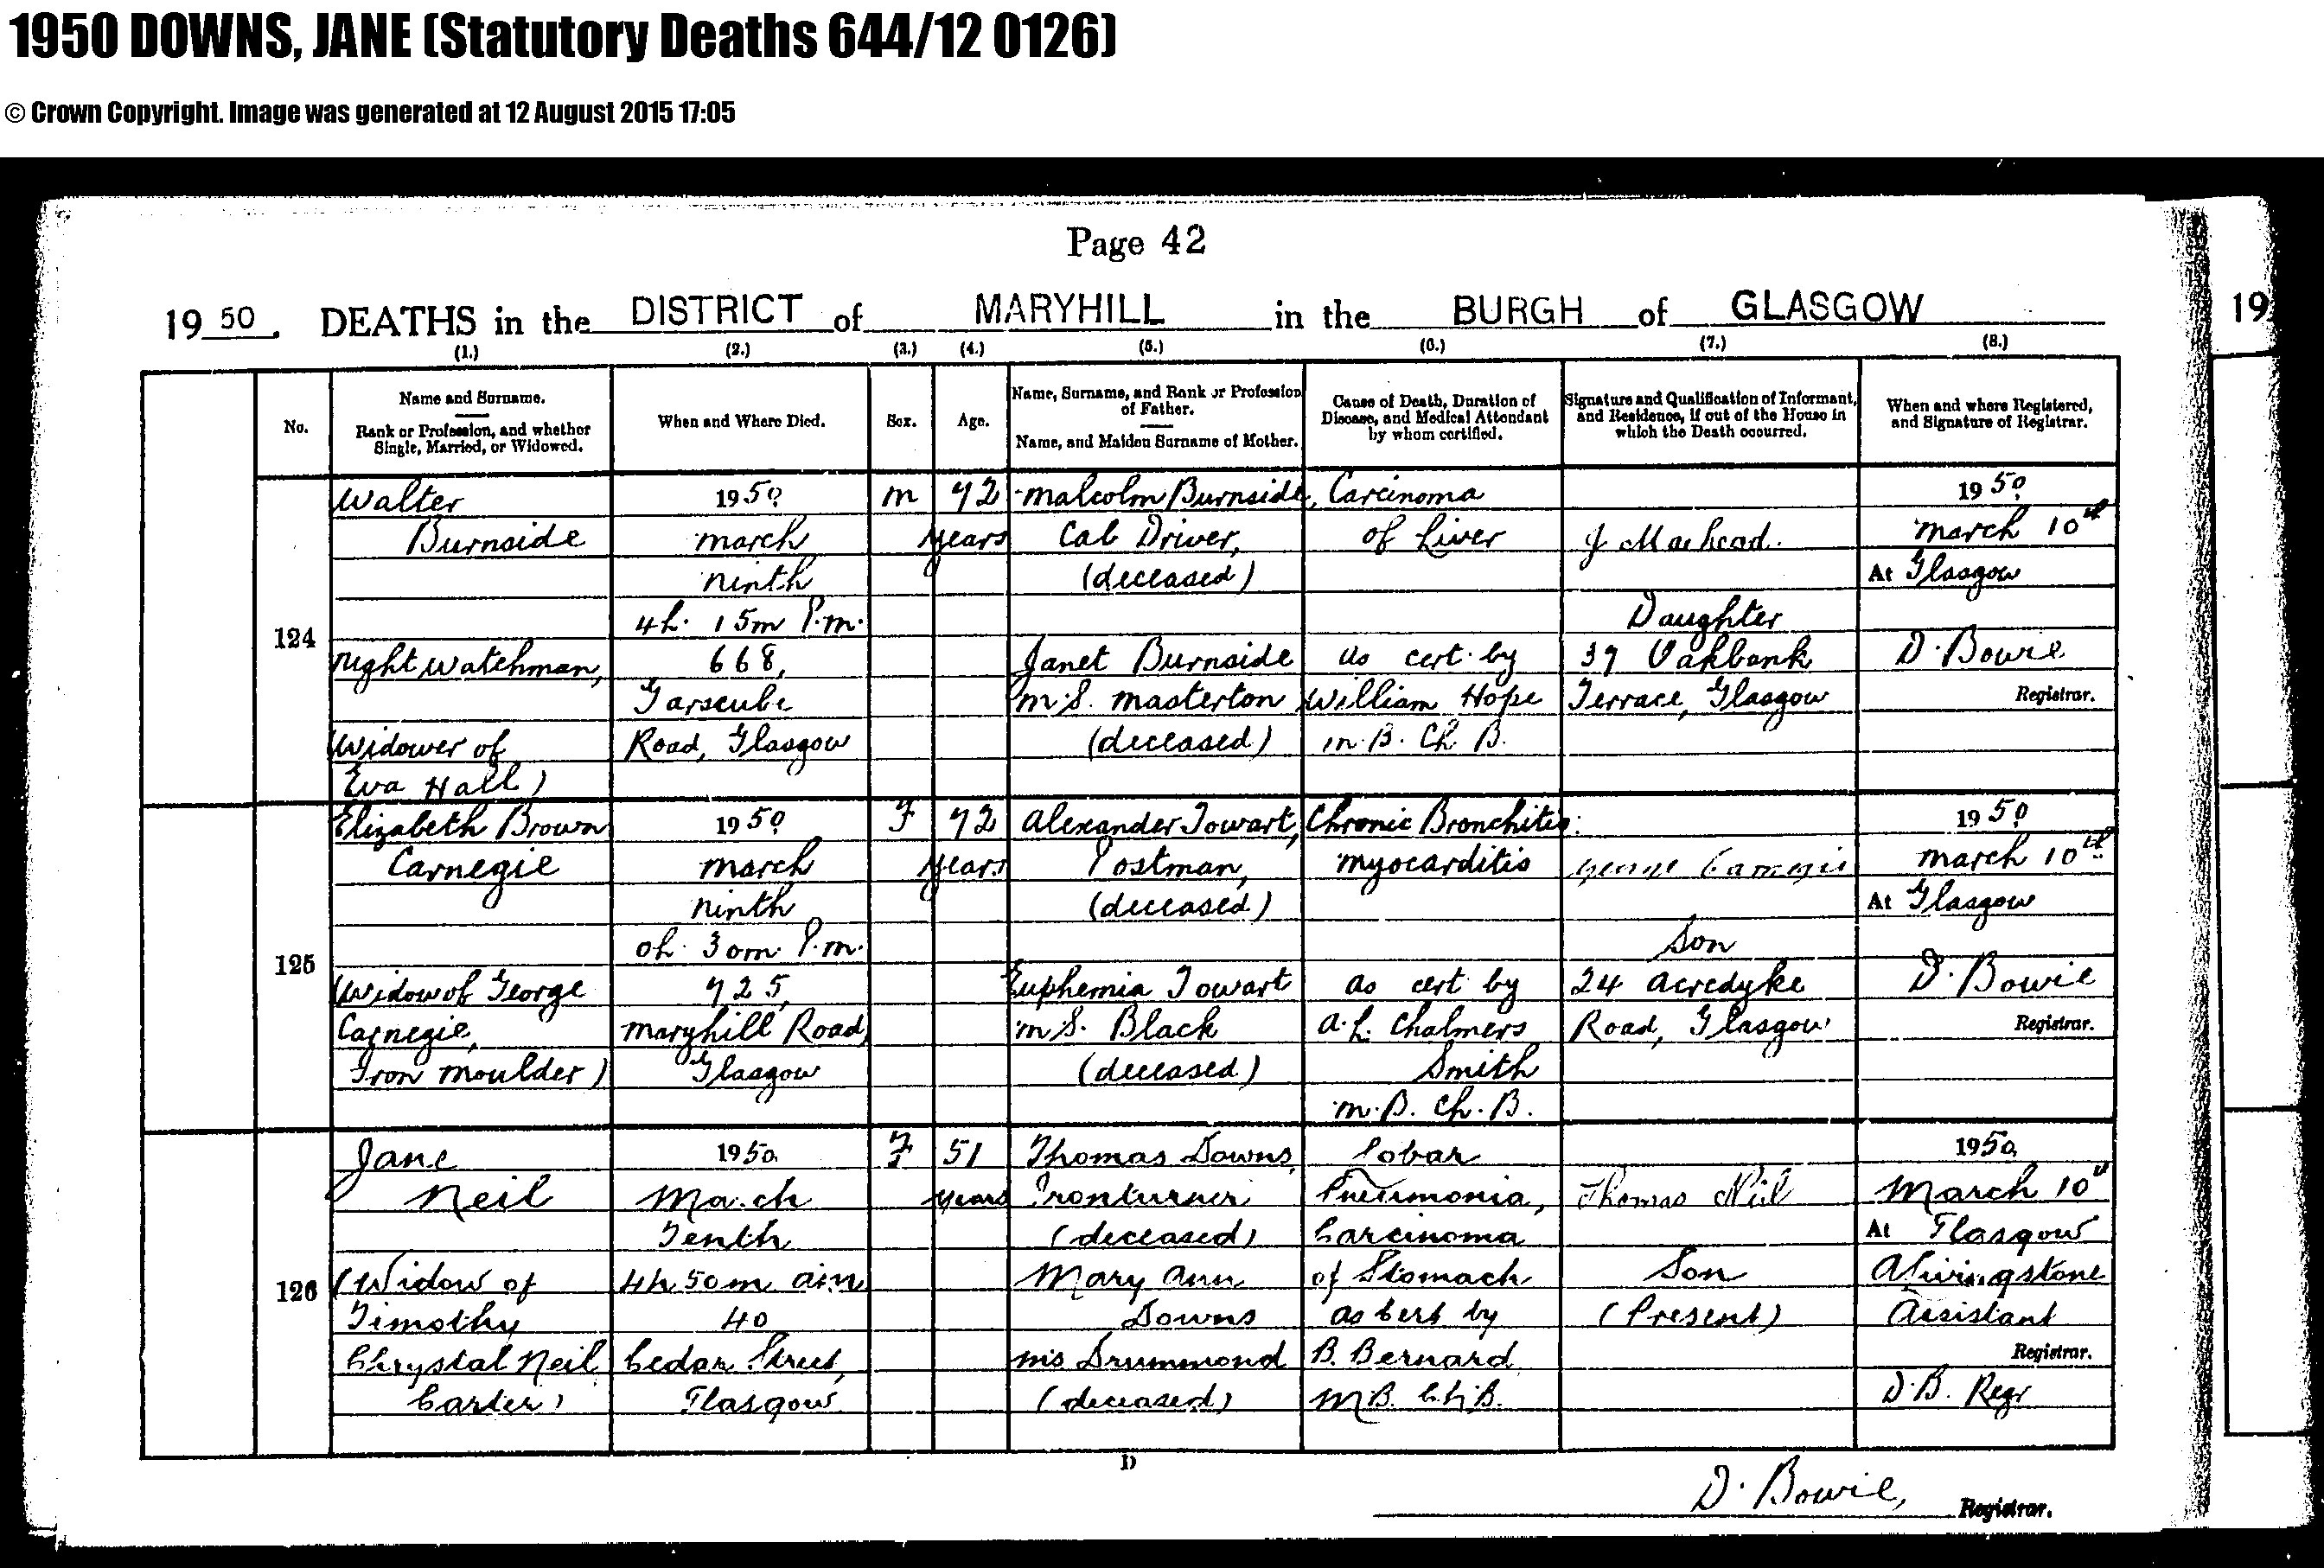 1950 DOWNS, JANE (Statutory Deaths 644/12 0126)
© Crown Copyright. Image was generated at 12 August 2015 17:05
Page 42
1950. DEATHS in the DISTRICT of MARYHILL in the BURGH of GLASGOW
19
(1.) (2.) (3.) (4.) (5.) (6.) (7.) (8.)
No.
Name and Surname.
Rank or Profession, and whether
Single, Married, or Widowed.
When and Where Died.
Sex.
Age.
Name, Surname, and Rank or Profession
of Father.
Name, and Maiden Surname of Mother.
Cause of Death, Duration of
Disease, and Medical Attendant
by whom certified.
Signature and Qualification of Informant,
and Residence, if out of the House in
which the Death occurred.
When and where Registered,
and Signature of Registrar.
124
Walter
Burnside
Night Watchman,
Widower of
Eva Hall)
1950
March
ninth
4h. 15m P.m.
668,
Garscube
Road, Glasgow
M
72
years
Malcolm Burnside,
Cab Driver,
(deceased)
Janet Burnside
m.S. Masterton
(deceased)
Carcinoma
of Liver
as cert. by
William Hope
M.B. Ch B.
J
Daughter
39 Oakbank
Terrace, Glasgow
1950
March 10th
At Glasgow
D. Bowie
Registrar.
125
Elizabeth Brown
Carnegie
Widow of George
Carnegie,
Iron Moulder)
1950
March
ninth
0h. 30m. P.m.
725,
Maryhill Road,
Glasgow
F
72
years
Alexander Towart,
Postman,
(deceased)
Euphemia Towart
m.S. Black
(deceased)
Chronic Bronchitis.
Myocarditis
as cert by
A.L. Chalmers
Smith
M.B. Ch.B.
George Carnegie
Son
24 Acredyke
Road, Glasgow
1950
March 10th
At Glasgow
D. Bowie
Registrar.
126
Jane
Neil
(Widow of
Timothy
Chrystal Neil
Carter)
1950
March
Tenth
4h 50m a.m
40
Cedar Street,
Glasgow
F
51
years
Thomas Downs,
Ironturner
(deceased)
Mary Ann
Downs
ms Drummond
(deceased)
Lobar
Pneumonia,
Carcinoma
of Stomach
as Cert by
B. Bernard
M.B. Ch.B.
Thomas Neil
Son
(Present)
1950
March 10th
At Glasgow
A Livingstone
Assistant
Registrar.
D.B. Regr
D
D. Bowie, Registrar.